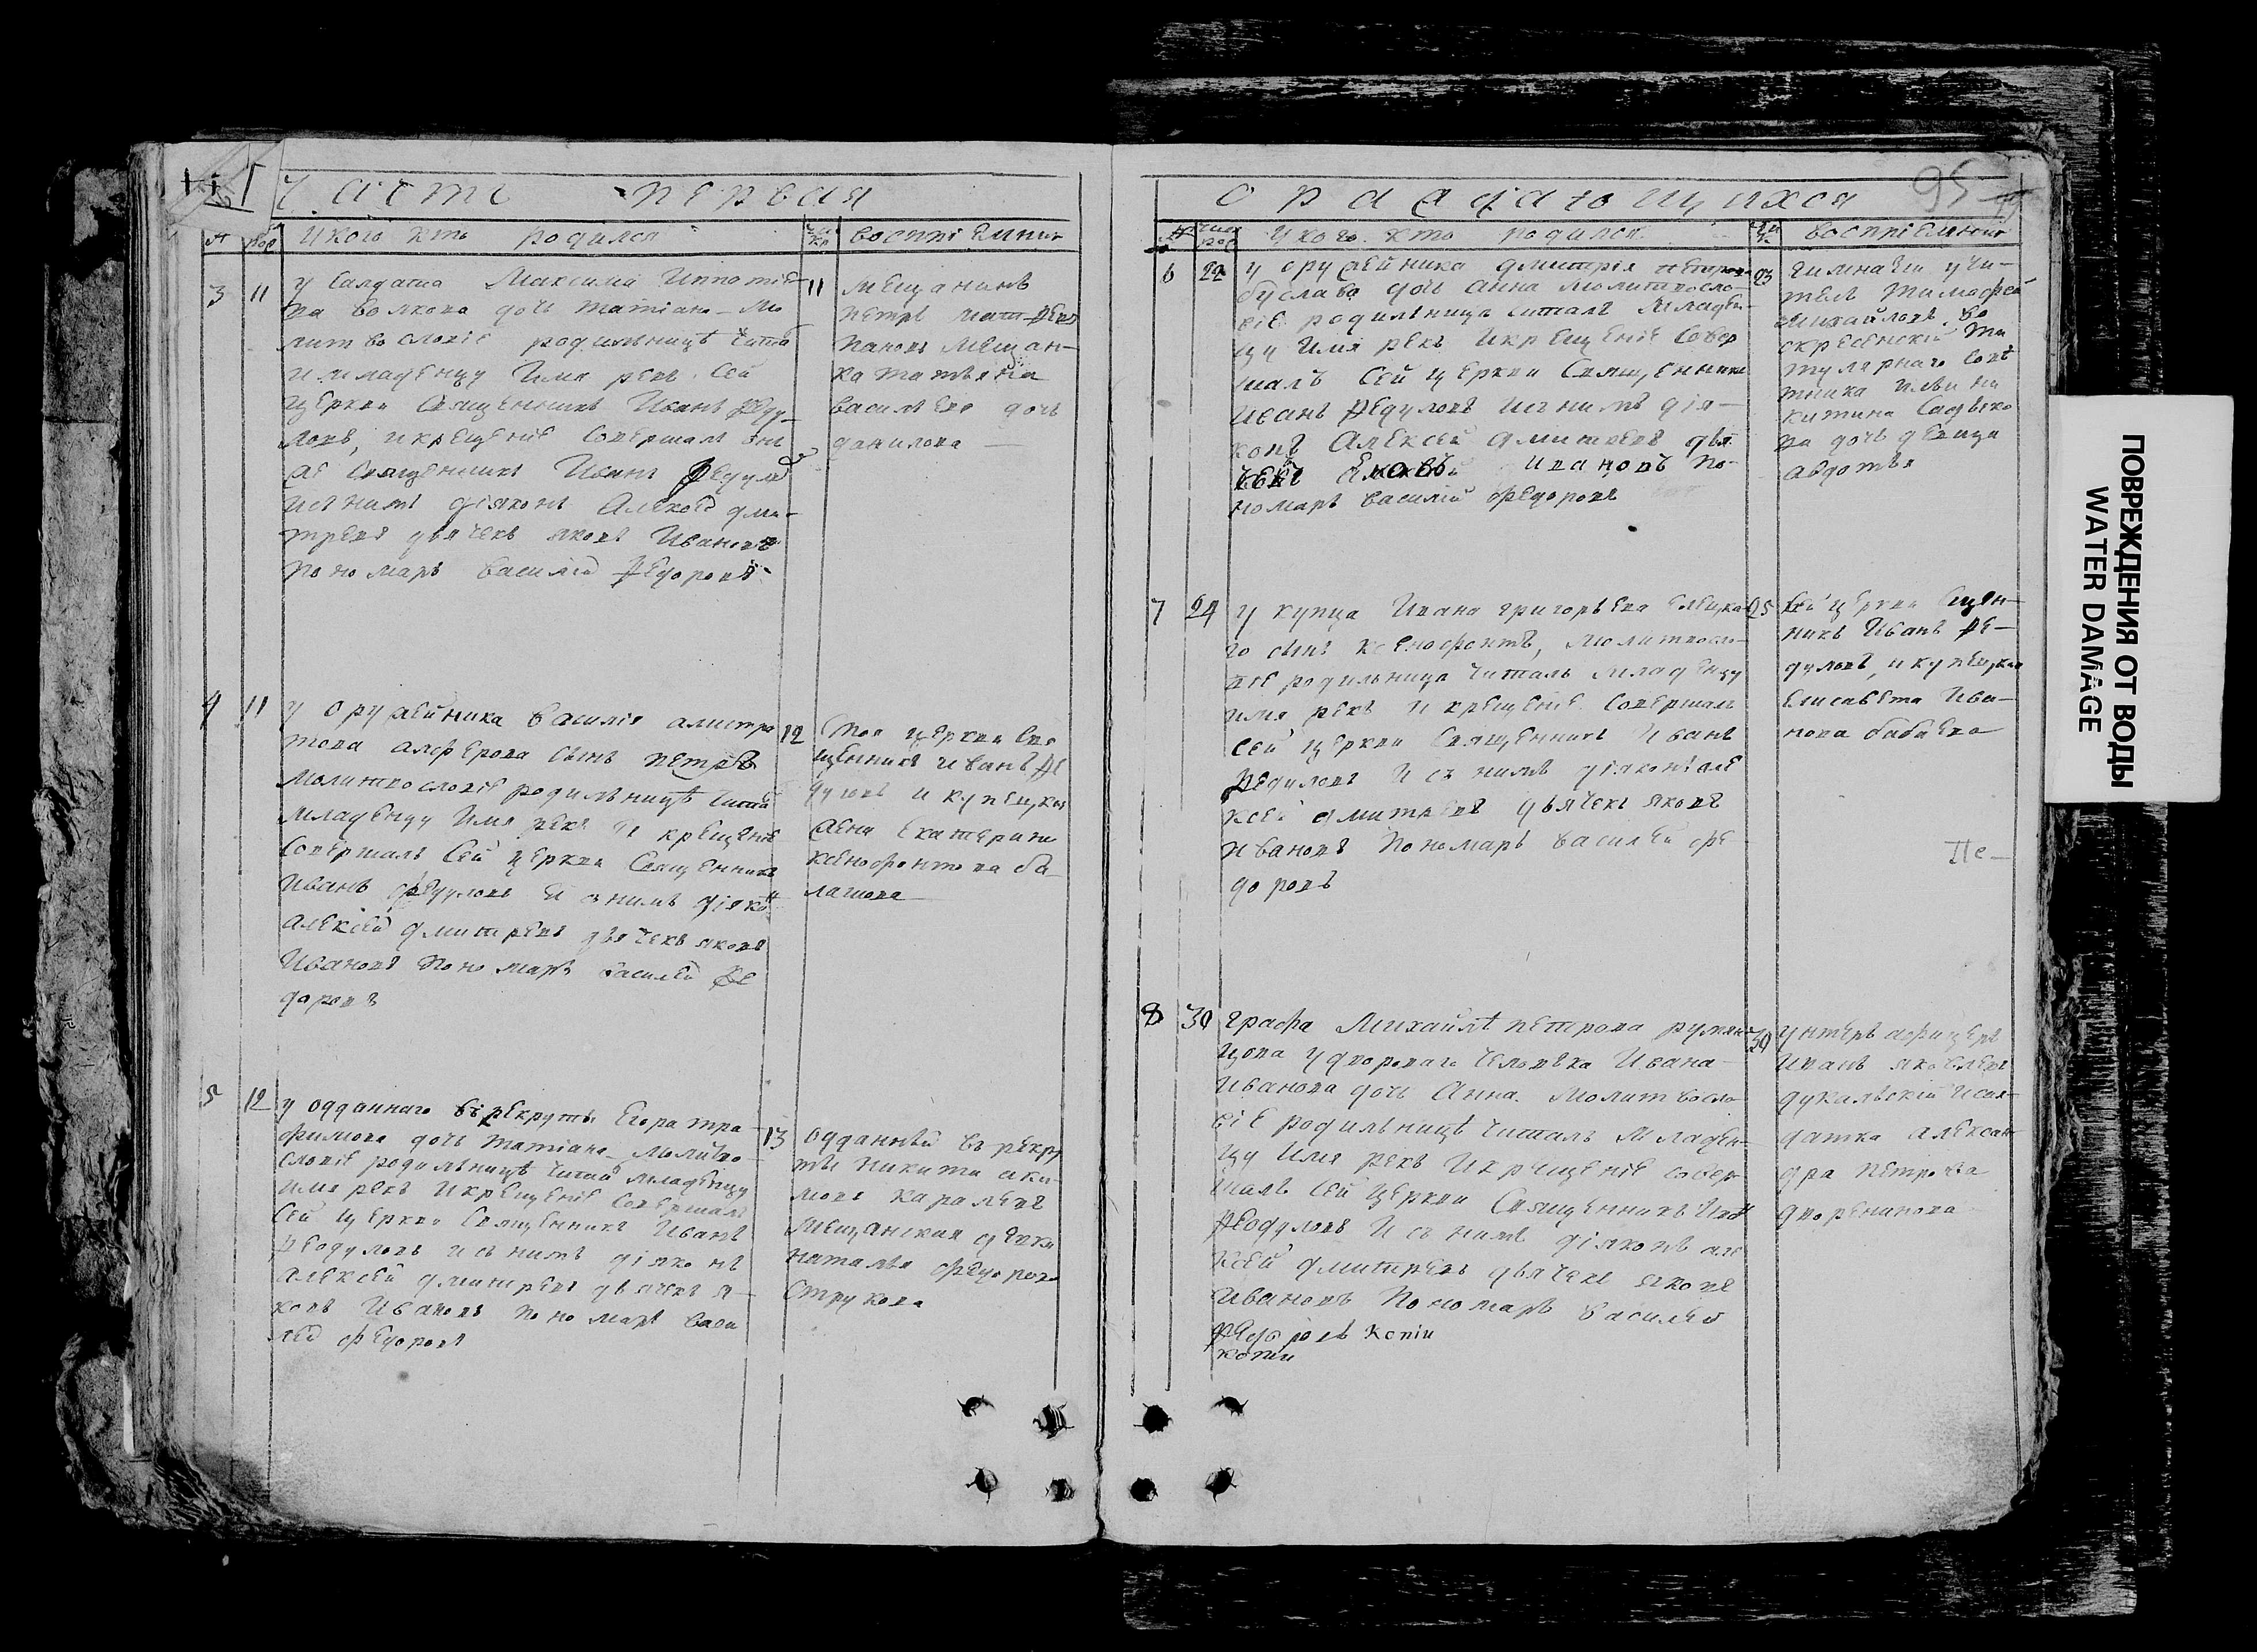 Часть первая
№ рож У кого кто родился чис кр восприемник
3 11 у Салдата Максима Ипполи-
та Волкова дочь татіана Мо
литвословіе родильницѣ чита
и младенцу Имя рекъ Сей
церкви Священникъ Иванъ Феду
ловъ, и крещеніе Совершал он
же Священникъ Иванъ Федулов
исъ нимъ діяконъ Алексей дми-
тревъ дьячекъ яковъ Ивановъ
пономарь василей Федоровъ
11 мещанинъ
петръ
мещан-
ка татьяна
васильева дочь
данилова
4 11 у оружейника Василія
алферова сынъ петръ
молитвословіе родильницѣ читал
младенцу Имя рекъ и крещеніе
Совершалъ Сей церкви Священникъ
Иванъ федуловъ и снимъ діякон
алексей дмитревъ дьячекъ яковъ
Ивановъ пономарь василей Фе
доровъ
12 Тоя церкви Свя
щенникъ иванъ Фе
дуловъ и купецкая
жена Екатерина
ксенофонтова ба
лашова
5 12 у одданнаго въ рекруты Егора тра
фимова дочь татіана молитво
словіе родильницѣ читал младенцу
имя рекъ и крещеніе Совершалъ
Сей церкви Священникъ Иванъ
Феодуловъ и съ нимъ діяконъ
алексей дмитревъ дьячекъ я-
ковъ Ивановъ пономарь васи
лей федоровъ
13 одданный въ рекру
ты никита аки-
мовъ каралевъ
мещанская девка
наталья федорова
Струкова
о раждающихся
95
№ числ рож У кого кто родился чи кр восприемник
6 22 у оружейника дмитрія петрова
буслава дочь анна молитвосло-
віе родильницѣ читалъ Младен-
цу Имя рекъ И крещеніе Совер
шалъ Сей церкви Священникъ
иванъ Федуловъ исъ нимъ дія-
конъ Алексей дмитревъ дья
чекъ Яковъ Ивановъ по-
номарь василій федоровъ
23 гимназіи учи-
тель тимофей
михайловъ во
скресенскій ти
тулярнаго Совѣ
тника ильи ни
китина
ва дочь девица
авдотья
7 24 у купца Ивана григорьева елецка
го сынъ ксенофонтъ, молитвосло-
віе родильницѣ читалъ младенцу
имя рекъ и крещеніе Совершалъ
сей церкви Священникъ Иванъ
Федуловъ И съ нимъ діяконъ але
ксей дмитревъ дьячекъ яковъ
ивановъ пономарь василей фе
доровъ
25 Сей церкви Сщен-
никъ Иванъ Фе-
дуловъ, и купецкая
Елисавета Ива-
нова бабаева
Пе-
8 30 графа Михайлѣ петрова румян
цова у двороваго человѣка Ивана
Иванова дочь Анна. Молитвосло
віе родильницѣ читалъ Младен-
цу Имя рекъ И крещеніе совер
шалъ Сей церкви Священникъ Иван
Феодуловъ И съ нимъ діяконъ але
ксей дмитревъ дьячекъ яковъ
Ивановъ Пономарь василей
Федоровъ копіи
копіи
30 унтеръ афицеръ
Иванъ яковлевъ
дукальскій и сал-
датка алексан
дра петрова
дворенинова
ПОВРЕЖДЕНИЯ ОТ ВОДЫ
WATER DAMAGE